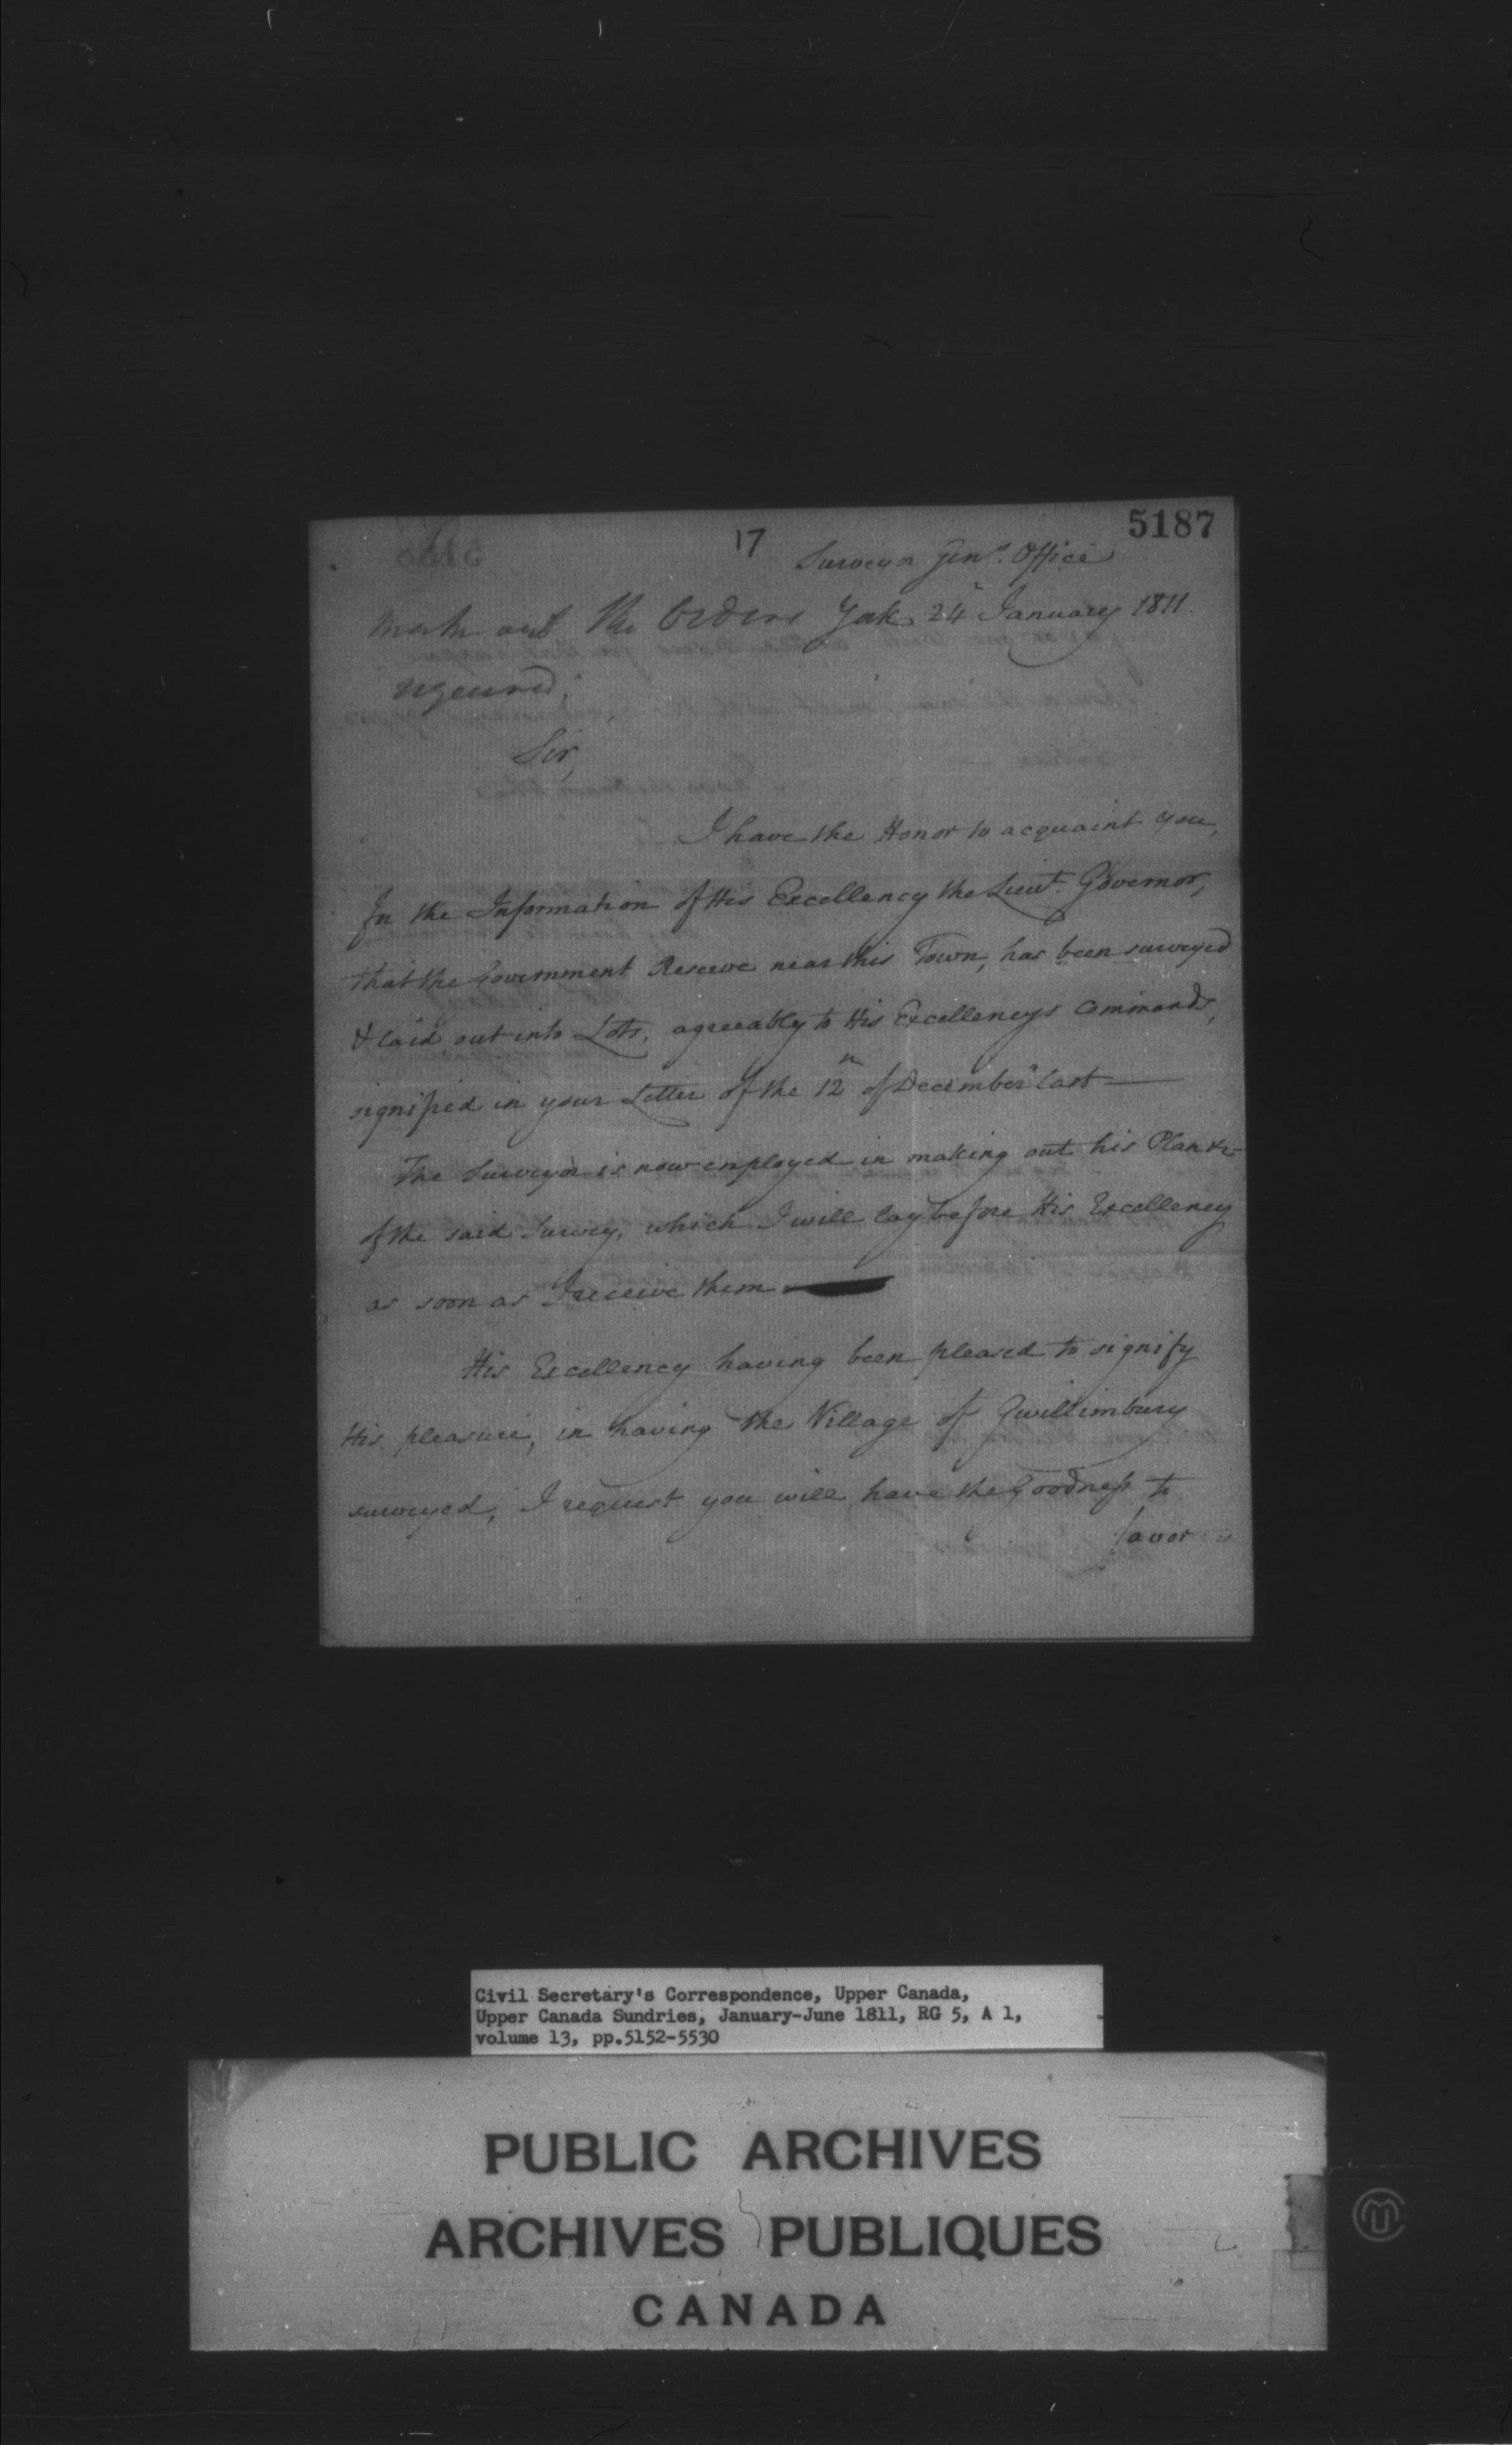 5187
17
Surveyor Genl. Office
York 24th January 1811.
the Orders
required.
Sir,
I have the Honor to acquaint you,
For the Information of His Excellency the Lieut. Governor,
that the Government Reserve near this Town, has been surveyed
& laid out into Lots, agreeably to His Excellencys Commands,
signified in your Letter of the 12th of December last —
The Surveyor is now employed in making out his Plan &c
of the said Survey, which I will lay before His Excellency
as soon as I receive them —
His Excellency having been pleased to signify
His pleasure, in having the Village of Gwillimbury
surveyed, I request you will have the Goodness to
favor
Civil Secretary's Correspondence, Upper Canada,
Upper Canada Sundries, January-June 1811, RG 5, A 1,
volume 13, pp.5152-5530
PUBLIC ARCHIVES
ARCHIVES PUBLIQUES
CANADA